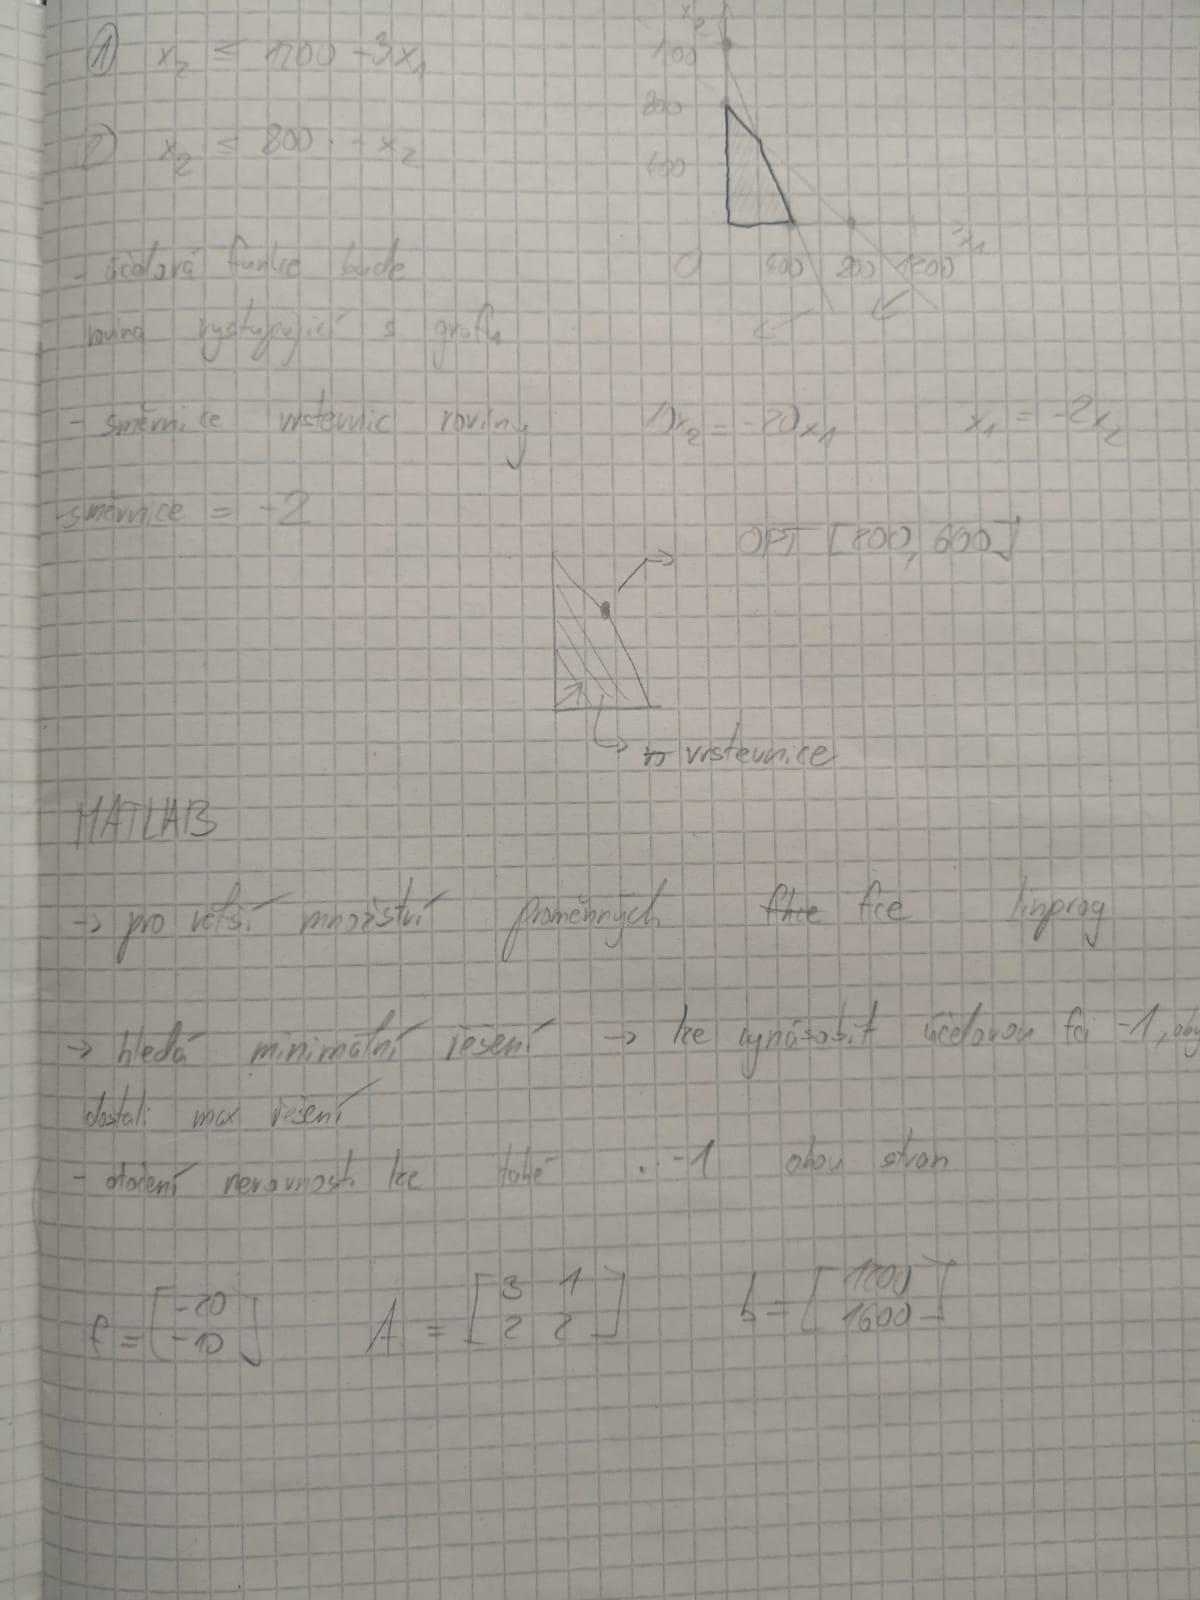 ① x₂ ≤ 1200 - 3x₁
② x₂ ≤ 800 - x₂
x₂
800
400
0 400 800 1200 x₁
- účelová funkce bude
rovina vystupující s grafu
- směrnice vrstevnic roviny 10x₂ = -20x₁ x₁ = -2x₂
směrnice = -2
OPT [200, 600]
vrstevnice
MATLAB
→ pro větší množství proměnných fce linprog
→ hledá minimální řešení → lze vynásobit účelovou fci -1, aby
dostali max řešení
- otočení nerovnosti lze také · -1 obou stran
f = [-20 -10] A = [3 1 2 2] b = [1200 1600]